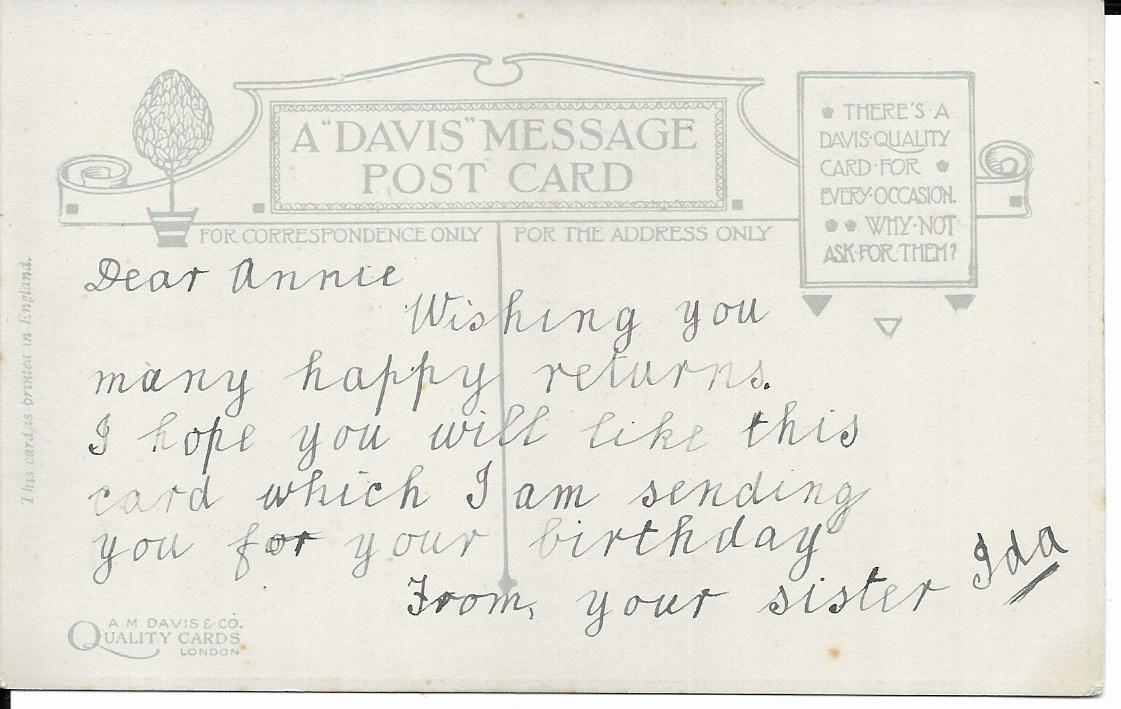 A "DAVIS" MESSAGE
POST CARD
FOR CORRESPONDENCE ONLY
FOR THE ADDRESS ONLY
THERE'S·A
DAVIS·QUALITY
CARD·FOR
EVERY·OCCASION.
WHY·NOT
ASK·FOR·THEM?
This card is printed in England.
Dear Annie
Wishing you
many happy returns.
I hope you will like this
card which I am sending
you for your birthday
From, your sister Ida
A M. DAVIS & CO.
QUALITY CARDS
LONDON